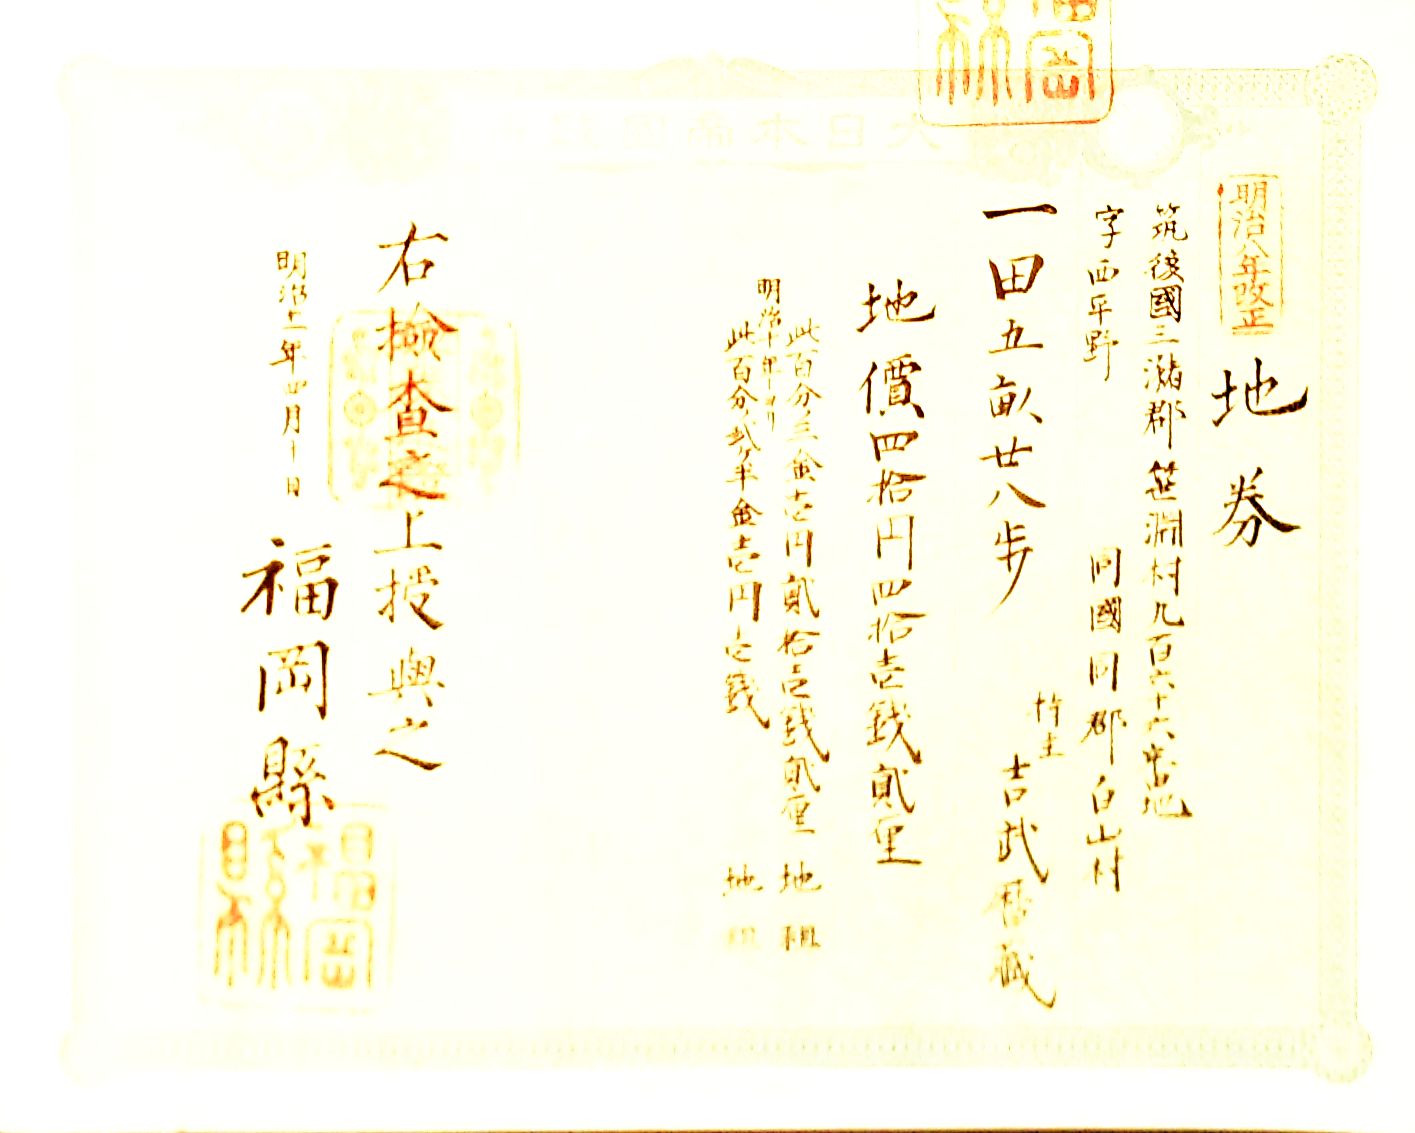 大日本帝国政府
明治八年改正
地券
筑後國三潴郡笹渕村九百六十六番地
字西平野
同國同郡白山村
一田五畝廿八歩
持主
吉武
地價四拾円四拾壱銭貳厘
此百分ノ三金壱円貳拾壱銭貳厘 地租
明治十年ヨリ
此百分ノ貳ヶ半金壱円壱銭 地租
右檢査之上授與之
明治十一年四月十日
福岡縣
福岡縣